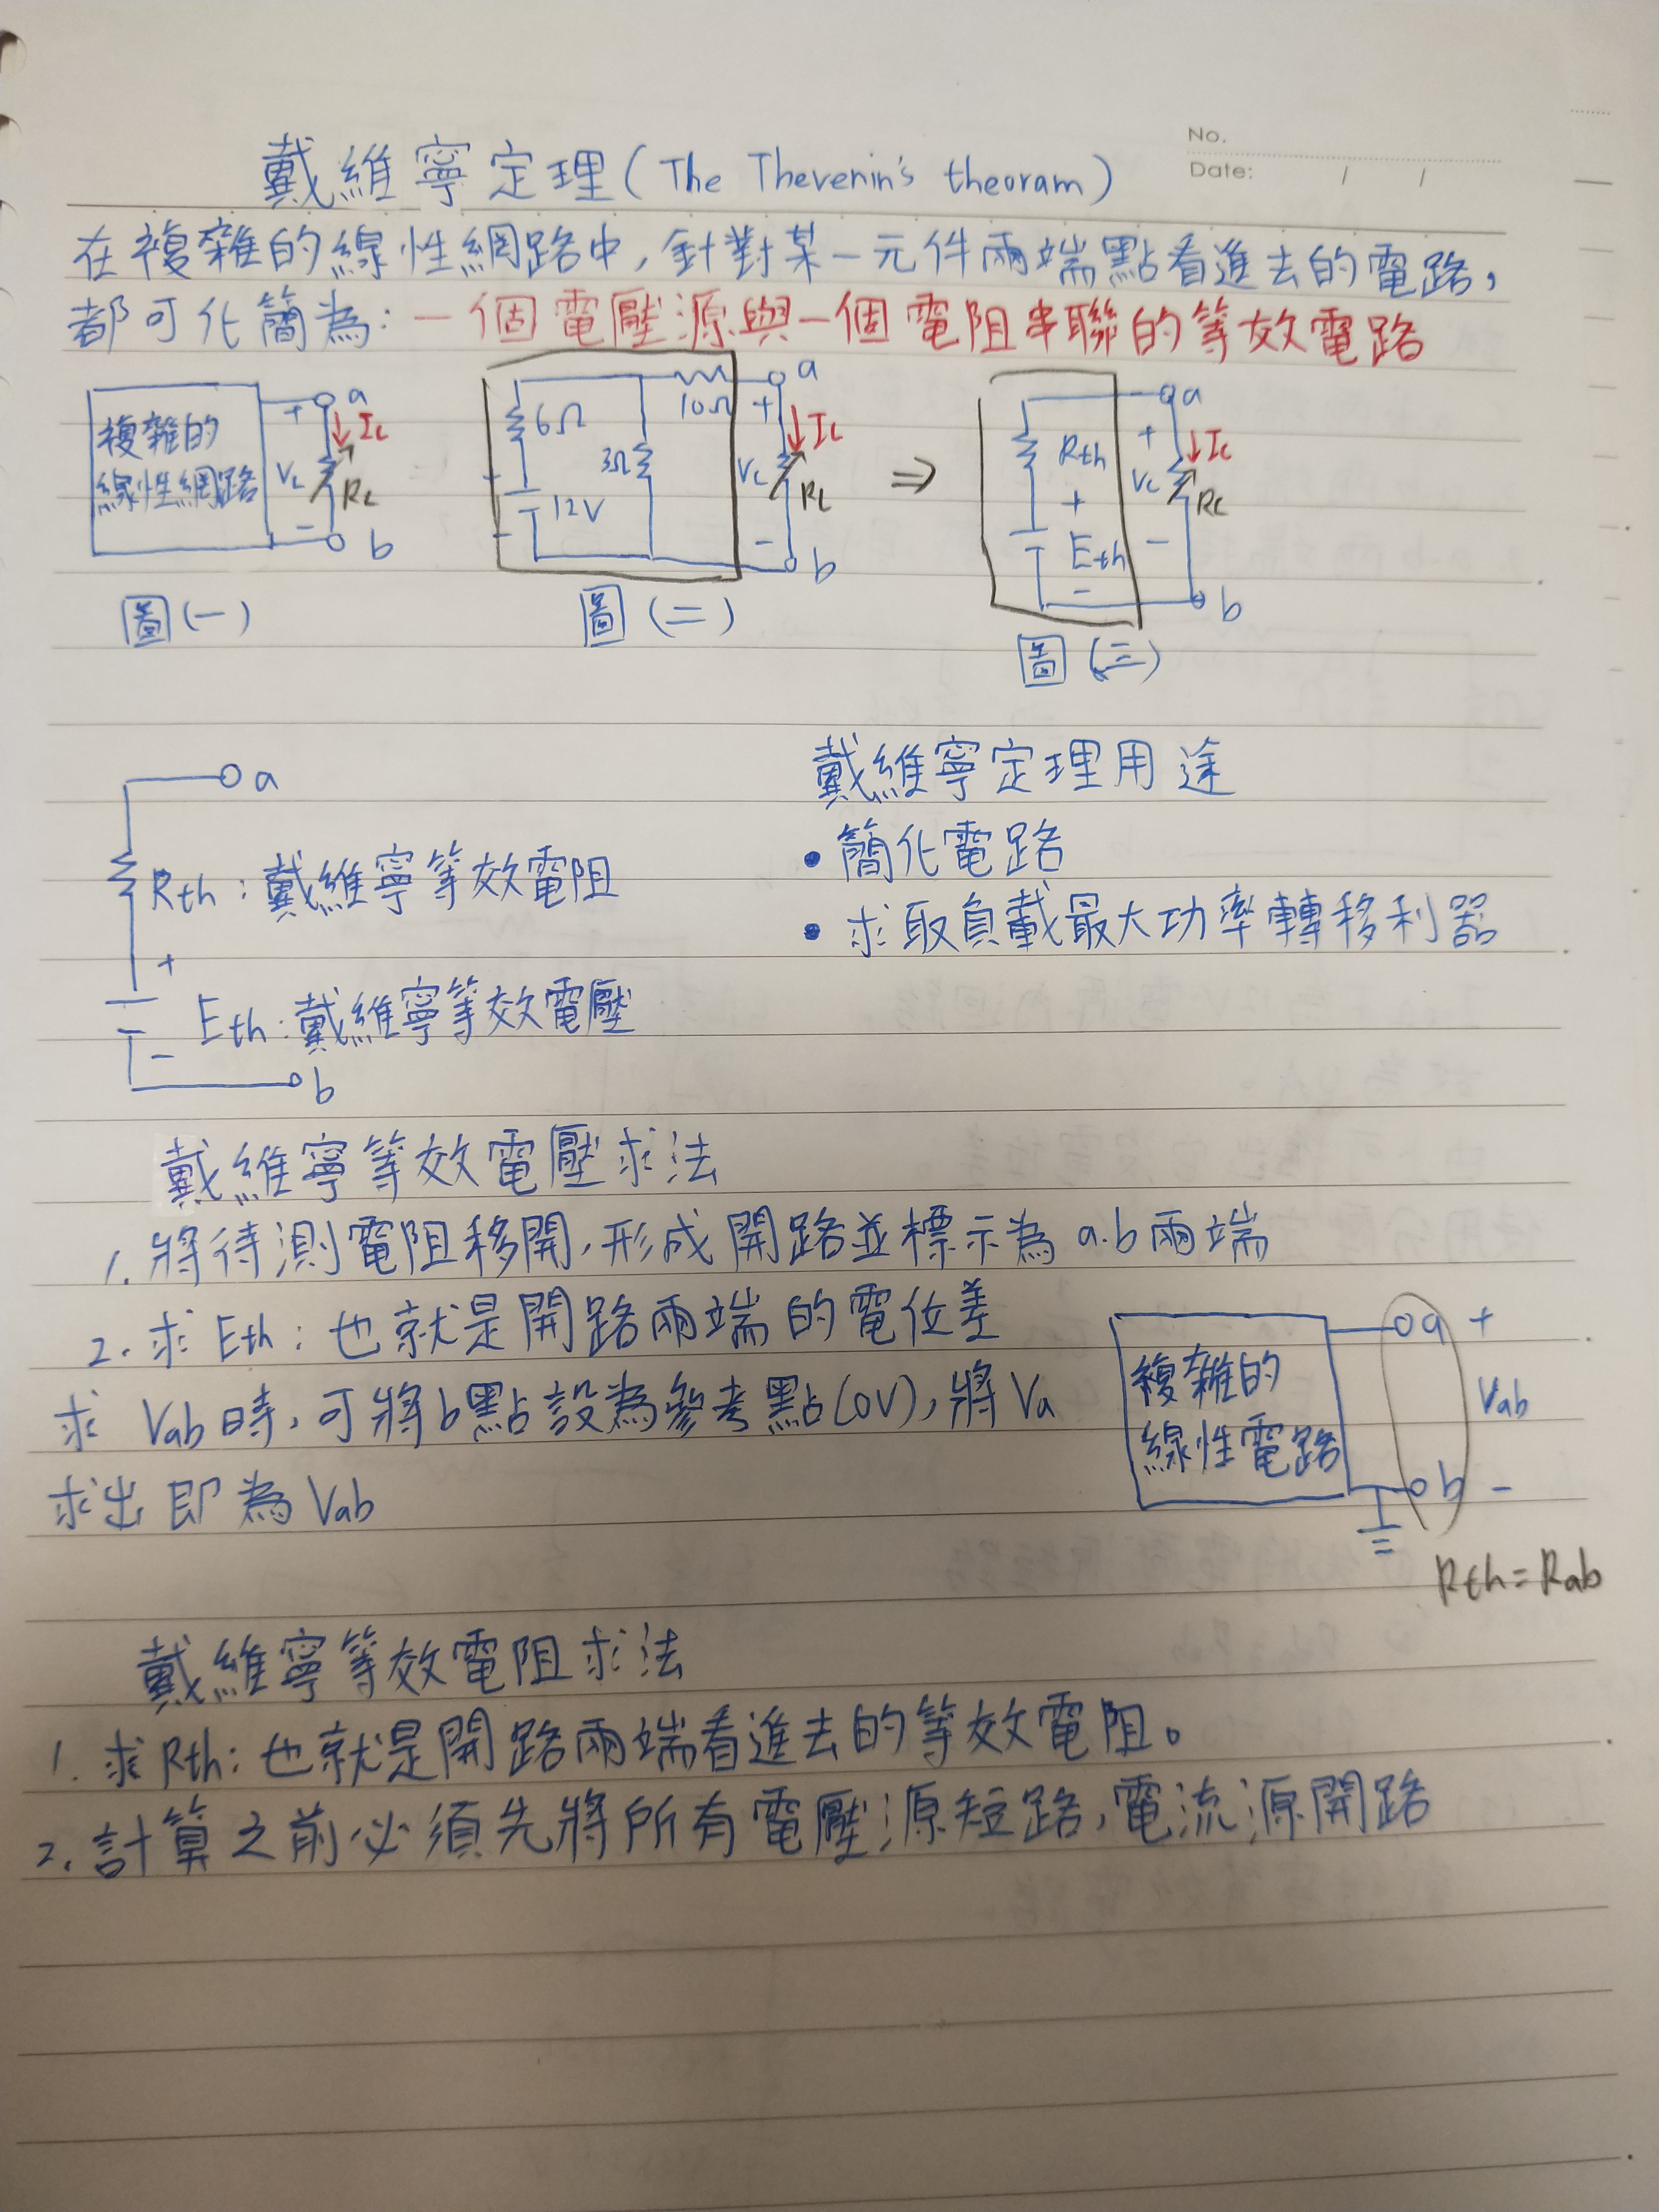 No.
Date: / /
戴維寧定理(The Thevenin's theoram)
在複雜的線性網路中,針對某一元件兩端點看進去的電路,
都可化簡為:一個電壓源與一個電阻串聯的等效電路
複雜的
線性網路
a
+
IL
VL
RL
-
b
圖(一)
6Ω
12V
3Ω
10Ω
a
+
IL
VL
RL
-
b
圖(二)
⇒
Rth
+
Eth
-
a
+
IL
VL
RL
-
b
圖(三)
a
Rth:戴維寧等效電阻
+
Eth:戴維寧等效電壓
-
b
戴維寧定理用途
• 簡化電路
• 求取負載最大功率轉移利器
戴維寧等效電壓求法
1. 將待測電阻移開,形成開路並標示為a.b兩端
2. 求Eth:也就是開路兩端的電位差
求Vab時,可將b點設為參考點(0V),將Va
求出即為Vab
複雜的
線性電路
a +
Vab
b -
Rth=Rab
戴維寧等效電阻求法
1. 求Rth:也就是開路兩端看進去的等效電阻。
2. 計算之前必須先將所有電壓源短路,電流源開路